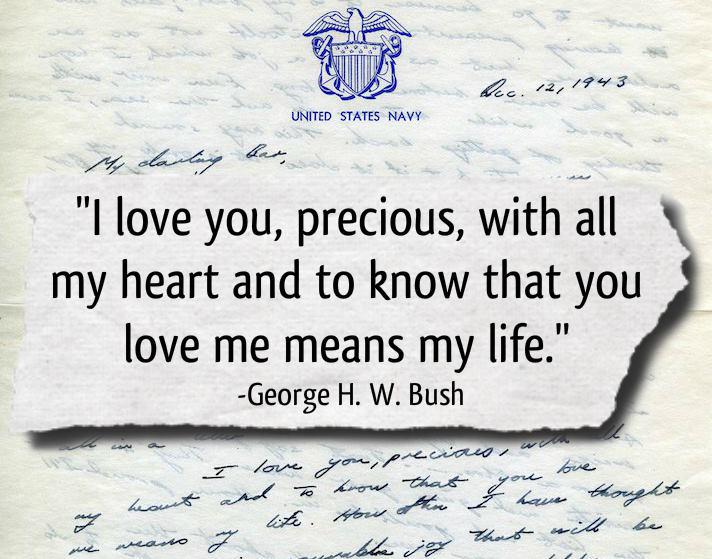 UNITED STATES NAVY
Dec. 12, 1943
My darling Bar,
"I love you, precious, with all
my heart and to know that you
love me means my life."
-George H. W. Bush
all in a
I love you, precious, with all
my heart and to know that you love
me means my life. How often I have thought
joy that will be